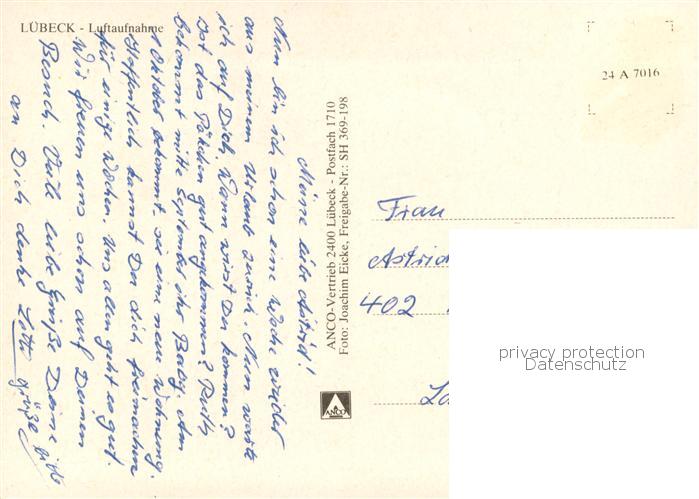 LÜBECK - Luftaufnahme
Meine liebe Astrid!
Nun bin ich schon eine Woche wieder
aus meinem Urlaub zurück. Nun warte
ich auf Dich. Wann wirst Du kommen?
Ist das Päckchen gut angekommen? Ruth
bekommt mitte September ihr Baby. Am
1 Oktober bekommt sie eine neue Wohnung.
Hoffentlich kannst Du dich freimachen
für einige Wochen. Uns allen geht es gut.
Wir freuen uns schon auf Deinen
Besuch. Viele liebe Grüße Deine
an Dich denke Lotti grüße bitte
ANCO-Vertrieb 2400 Lübeck - Postfach 1710
Foto: Joachim Eicke, Freigabe-Nr.: SH 369-198
ANCO
24 A 7016
Frau
Astrid
402
privacy protection
Datenschutz